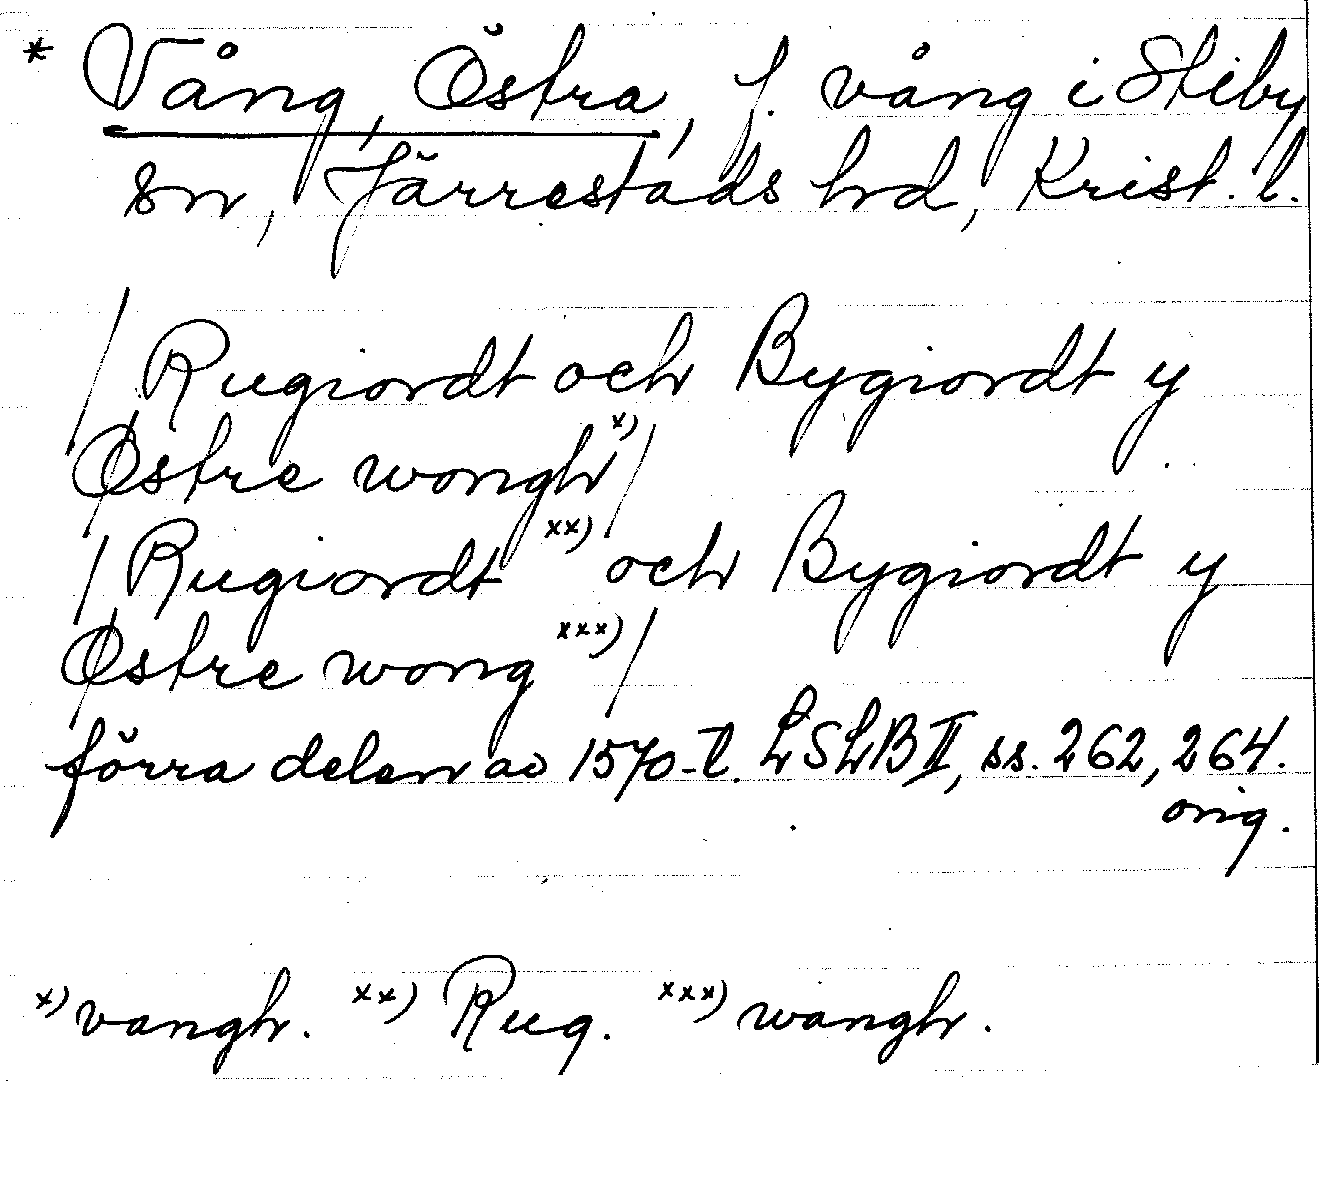 * Vång, Östra, f. vång i Stiby
sn, Järrestads hrd, Krist. l.
/ Rugiordt och Bygiordt y
Østre wongh x) /
/ Rugiordt xx) och Bygiordt y
Østre wong xxx) /
förra delen av 1570-t. LSLB II, ss. 262, 264.
orig.
x) vangh. xx) Rug. xxx) wangh.